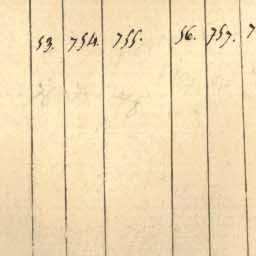 53. 754. 755. 56. 757. 7